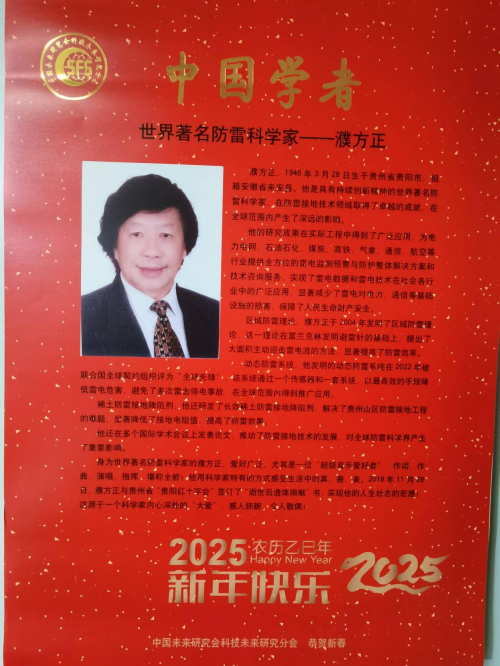 中国学者
世界著名防雷科学家——濮方正
濮方正，1946年3月28日生于贵州省贵阳市，祖
籍安徽省来安县。他是具有持续创新精神的世界著名防
雷科学家，在防雷接地技术领域取得了卓越的成就，在
全球范围内产生了深远的影响。
他的研究成果在实际工程中得到了广泛应用，为电
力电网、石油石化、煤炭、高铁、气象、通信、航空等
行业提供全方位的雷电监测预警与防护整体解决方案和
技术咨询服务，实现了雷电数据和雷电技术在社会各行
业中的广泛应用，显著减少了雷电对电力、通信等基础
设施的损害，保障了人民生命财产安全。
区域防雷理论，濮方正于2004年发明了区域防雷理
论，这一理论在富兰克林发明避雷针的基础上，提出了
大面积主动迎击雷电流的方法，显著提高了防雷效率。
动态防雷系统，他发明的动态防雷系统在2022年被
联合国全球契约组织评为“全球先锋”，该系统通过一个传感器和一套系统，以最高效的手段降
低雷电危害，避免了多次雷击停电事故，在全球范围内得到推广应用。
稀土防雷接地降阻剂，他还研发了长效稀土防雷接地降阻剂，解决了贵州山区防雷接地工程
的难题，显著降低了接地电阻值，提高了防雷效果。
他还在多个国际学术会议上发表论文，推动了防雷接地技术的发展，对全球防雷科学界产生
了重要影响。
身为世界著名防雷科学家的濮方正，爱好广泛，尤其是一位“超级音乐爱好者”，作词、作
曲、演唱、指挥，堪称全能，他用科学家特有的方式感受生活中的真、善、美。2018年11月28
日，濮方正与贵州省“贵阳红十字会”签订了“逝世后遗体捐献”书，实现他的人生壮志的宏愿，
这源于一个科学家内心深处的“大爱”，感人肺腑，令人敬佩！
2025 农历乙巳年
Happy New Year
新年快乐 2025
中国未来研究会科技未来研究分会 恭贺新春